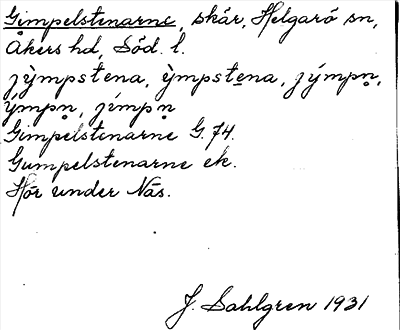 Gimpelstenarne, skär, Helgarö sn,
Åkers hd, Söd. l.
jy̆mpste̥na, y̆mpste̥na, jýmpn̥,
ýmpn̥, jímpn̥
Gimpelstenarne G. 74.
Gumpelstenarne ek.
Hör under Näs.
J. Sahlgren 1931